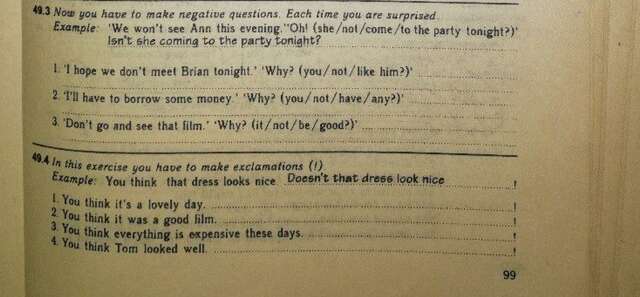 49.3 Now you have to make negative questions. Each time you are surprised.
Example: 'We won't see Ann this evening.' 'Oh! (she/not/come/to the party tonight?)'
Isn't she coming to the party tonight?
1. 'I hope we don't meet Brian tonight.' 'Why? (you/not/like him?)'
2. 'I'll have to borrow some money.' 'Why? (you/not/have/any?)'
3. 'Don't go and see that film.' 'Why? (it/not/be/good?)'
49.4 In this exercise you have to make exclamations (!).
Example: You think that dress looks nice. Doesn't that dress look nice !
1. You think it's a lovely day. !
2. You think it was a good film. !
3. You think everything is expensive these days. !
4. You think Tom looked well. !
99